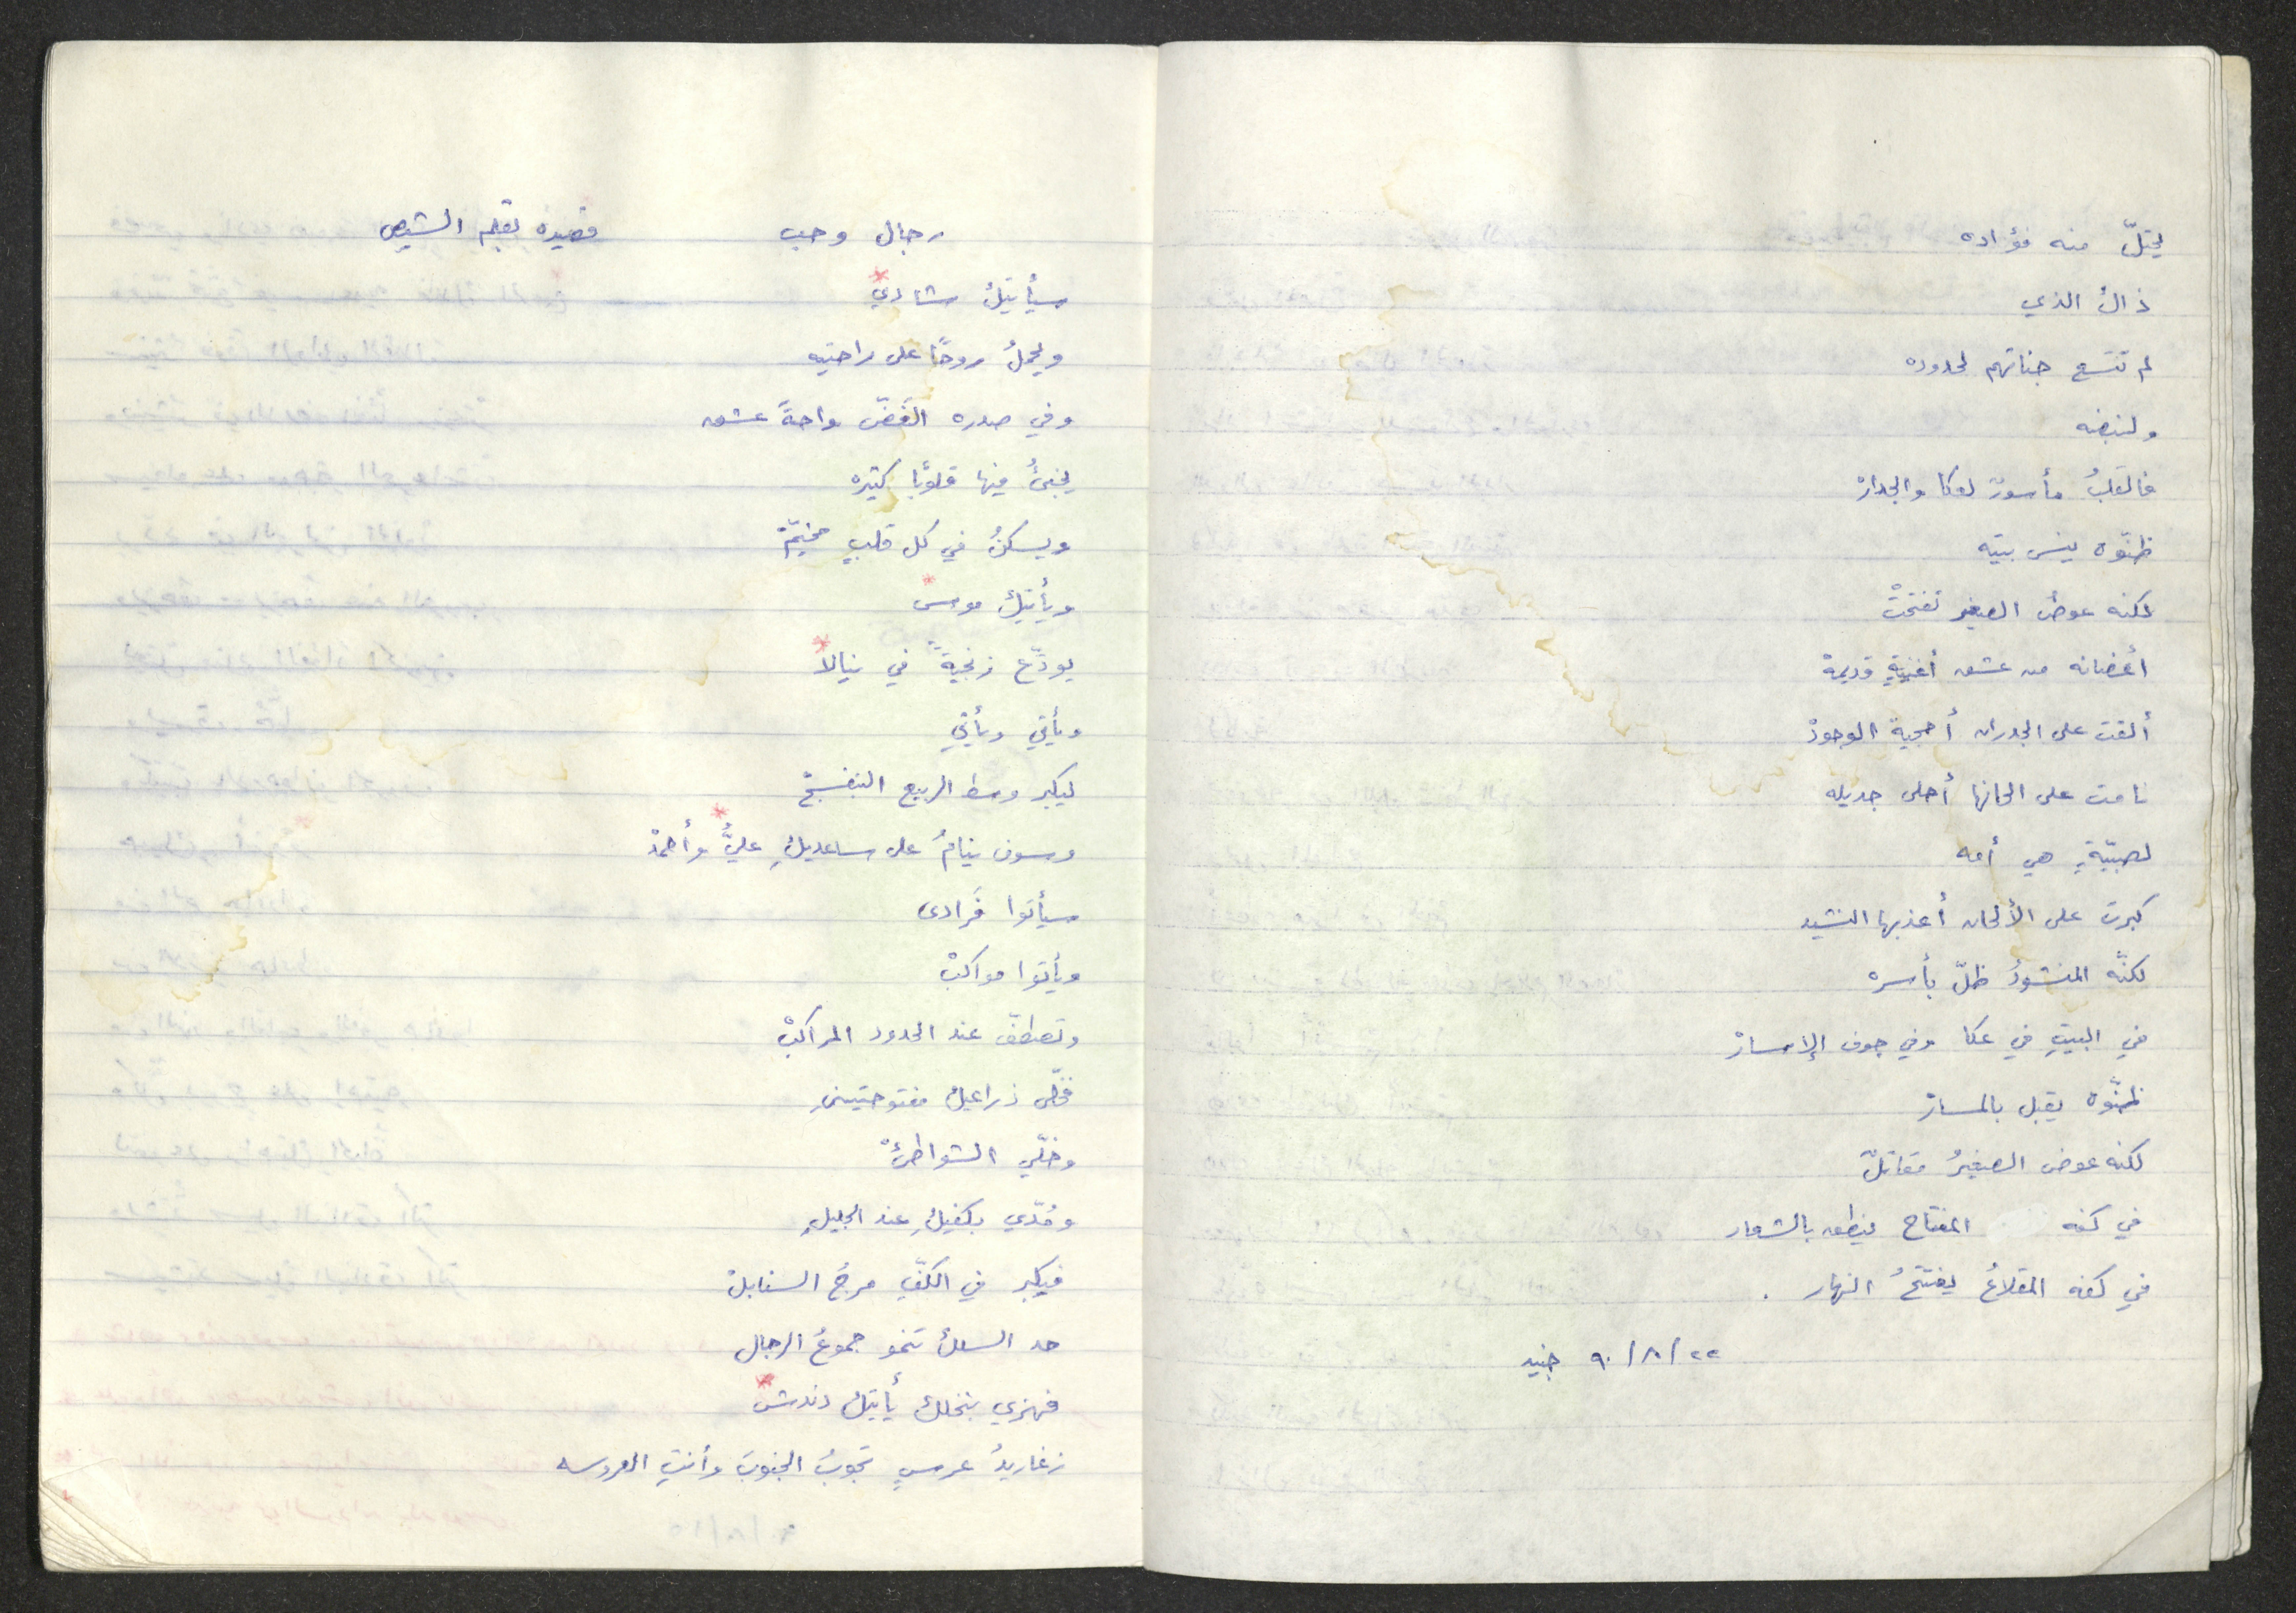 ليحتلّ منه فؤاده
ذاك الذي
لم تتسع جناتهم لحدوده
ولنبضه
فالقلبُ مأسورٌ لعكا والجدارْ
ظنّوه ينسى بيته
لكنه عوض الصغير تفتحتْ
أغصانه من عشق أغنيةٍ قديمة
ألقت على الجدران أحجية الوجودْ
نامت على الحانها أحلى جديله
لصبيّةٍ هي أمه
كبرت على الألحان أعذبها النشيد
لكنّه المنشودُ ظلّ بأسره
في البيتِ في عكا وفي جوف الإسارْ
ظنّوه يقبل بالمسارْ
لكنه عوض الصغيرُ مقاتلٌ
في كفه المفتاح ينطق بالشعار
في كفه المقلاعُ يفتتحُ النهار .
٢٢/٨/٩٠ جنيد
رجال وحب قصيده بقلم الشيص
سيأتيك شادي*
ويحملُ روحًا على راحتيه
وفي صدره الغَضّ واحةَ عشق
يخبئُ فيها قلوبًا كثيره
ويسكنُ في كل قلبٍ مخيّمْ
ويأتيك موسى*
يودّع زنجيةً في نيالا*
ويأتي ويأتي
ليكبر وسط الربيع البنفسجْ
وسوف ينامُ على ساعديكِ عليٌّ* وأحمدْ
سيأتوا فُرادى
ويأتوا مواكبْ
وتصطفّ عند الحدود المراكبْ
فخلّي ذراعيك مفتوحتينِ
وخلّي الشواطئْ
ومُدّي بكفيكِ عند الجليلِ
فيكبر في الكفّ مرجُ السنابلْ
حد السلك تنمو جموعُ الرجال
فهزي بنخلك يأتيك دندش*
زغاريدُ عرسٍ تجوبُ الجنوبَ وأنتِ العروسه